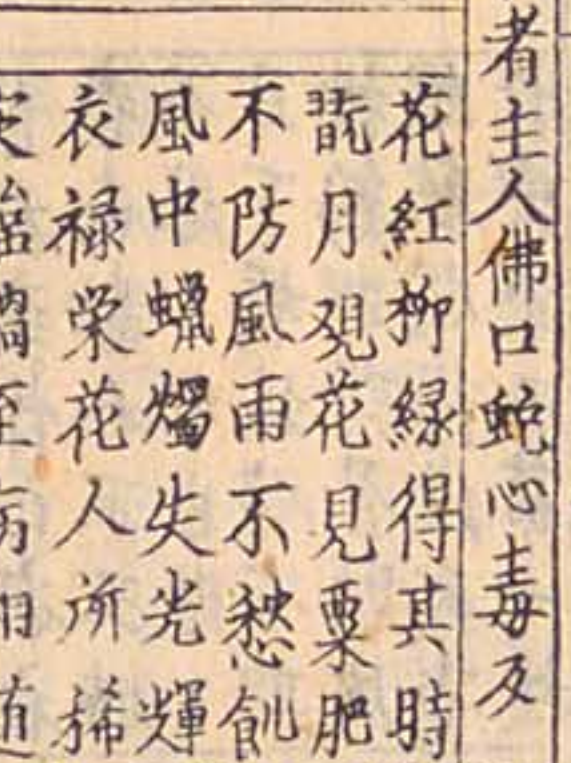 者主人佛口蛇心毒及
花紅柳緑得其時
翫月覌花見粟肥
不防風雨不愁飢
風中蠟燭失光輝
衣禄栄花人所稀